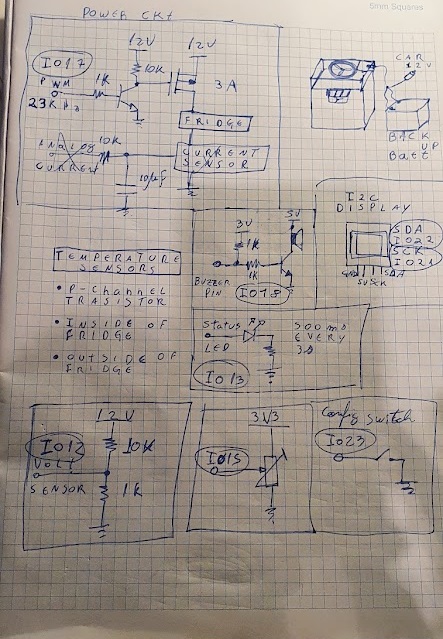 Siren Squares
POWER CKt
12V
12V
IO17
10K
PWM
1K
3A
23KHz
FRIDGE
Analog
CURRENT
10K
CURRENT
SENSOR
10µF
CAR
12V
BACK
UP
Batt
TEMPERATURE
SENSORS
• P-channel
TRASISTOR
• INSIDE OF
FRIDGE
• OUTSIDE OF
FRIDGE
3V
5V
1K
1K
BUZZER
PIN
IO18
I2C
DISPLAY
SDA
IO22
SCK
IO21
GND
5V
SCK
SDA
Status
LED
500ms
EVERY
IO13
12V
IO12
10K
VOLT
SENSOR
1K
3V3
IO15
Config Switch
IO23